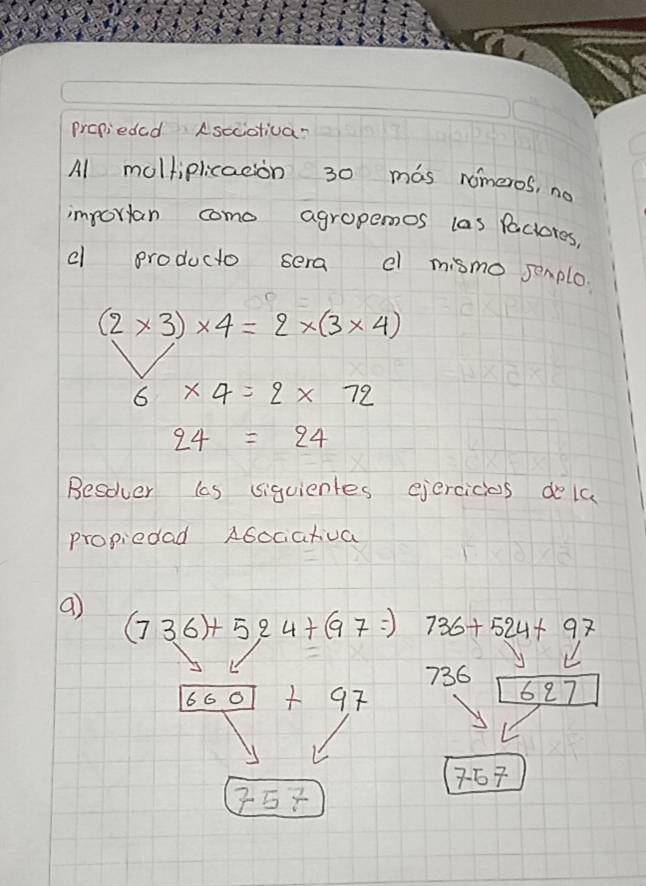 propiedad Asociativa-
Al moltiplicación 30 más números, no
importan como agropemos las factores,
el producto sera el mismo
(2 × 3) × 4 = 2 × (3 × 4)
6 × 4 = 2 × 12
24 = 24
Resolver los siguientes ejercicios de la
propiedad Asociativa
a) (136) + 524 + (97 =) 136 + 524 + 97
660 + 97 136 621
757 757